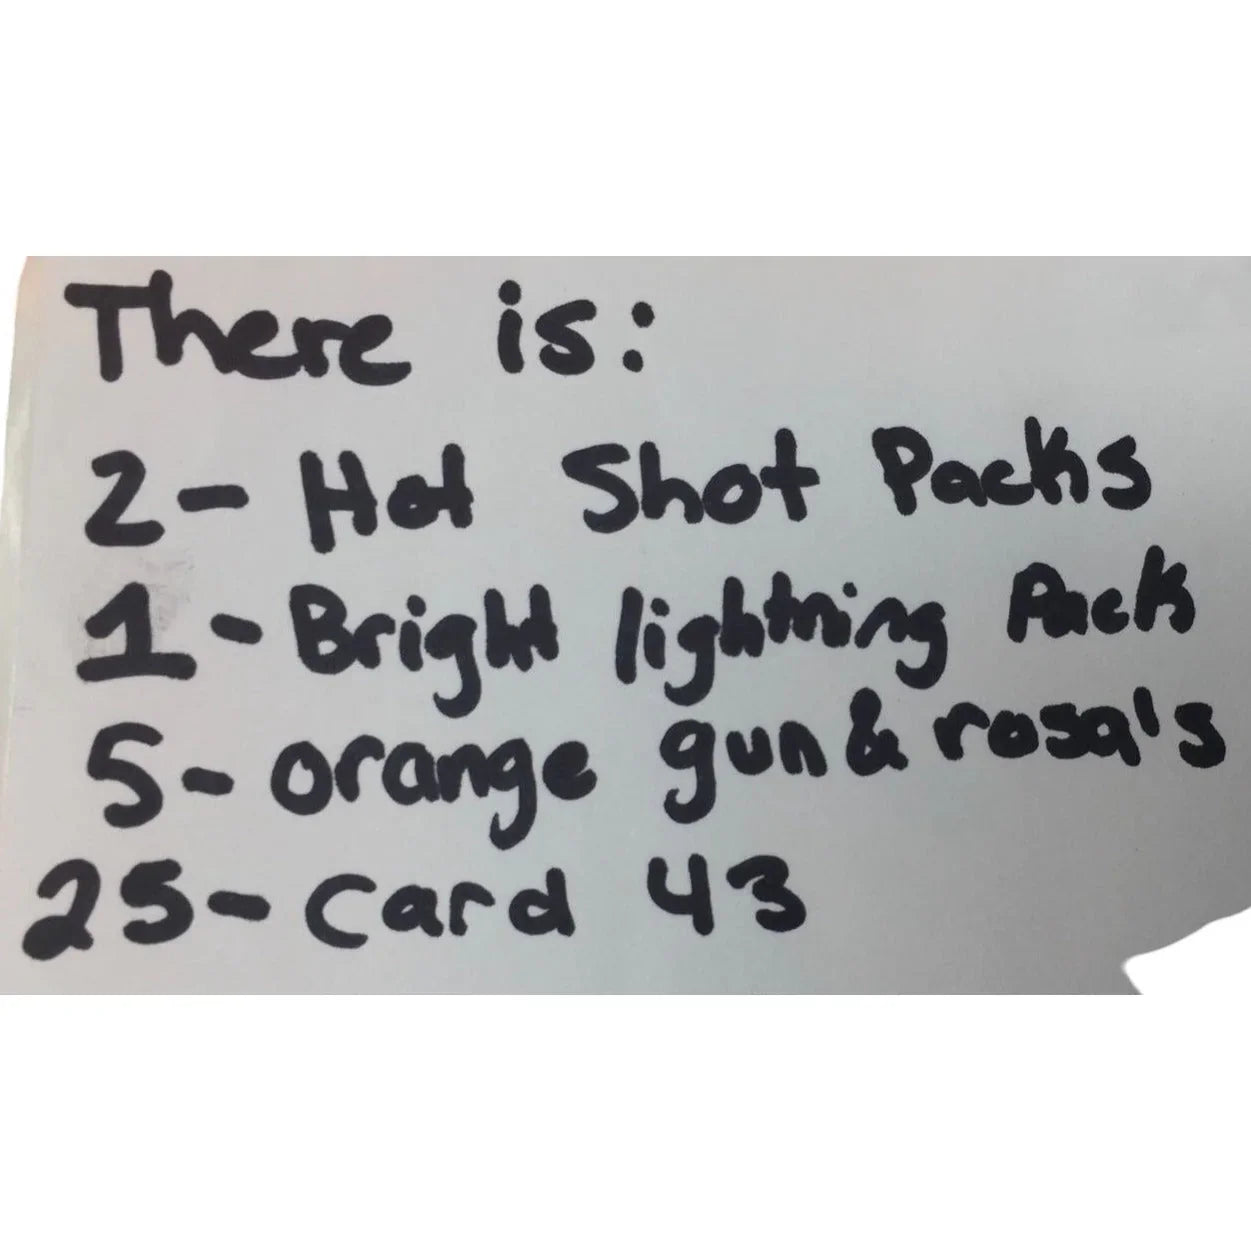 There is:
2- Hot Shot Packs
1- Bright lightning Pack
5- orange gun & rosa's
25- Card 43